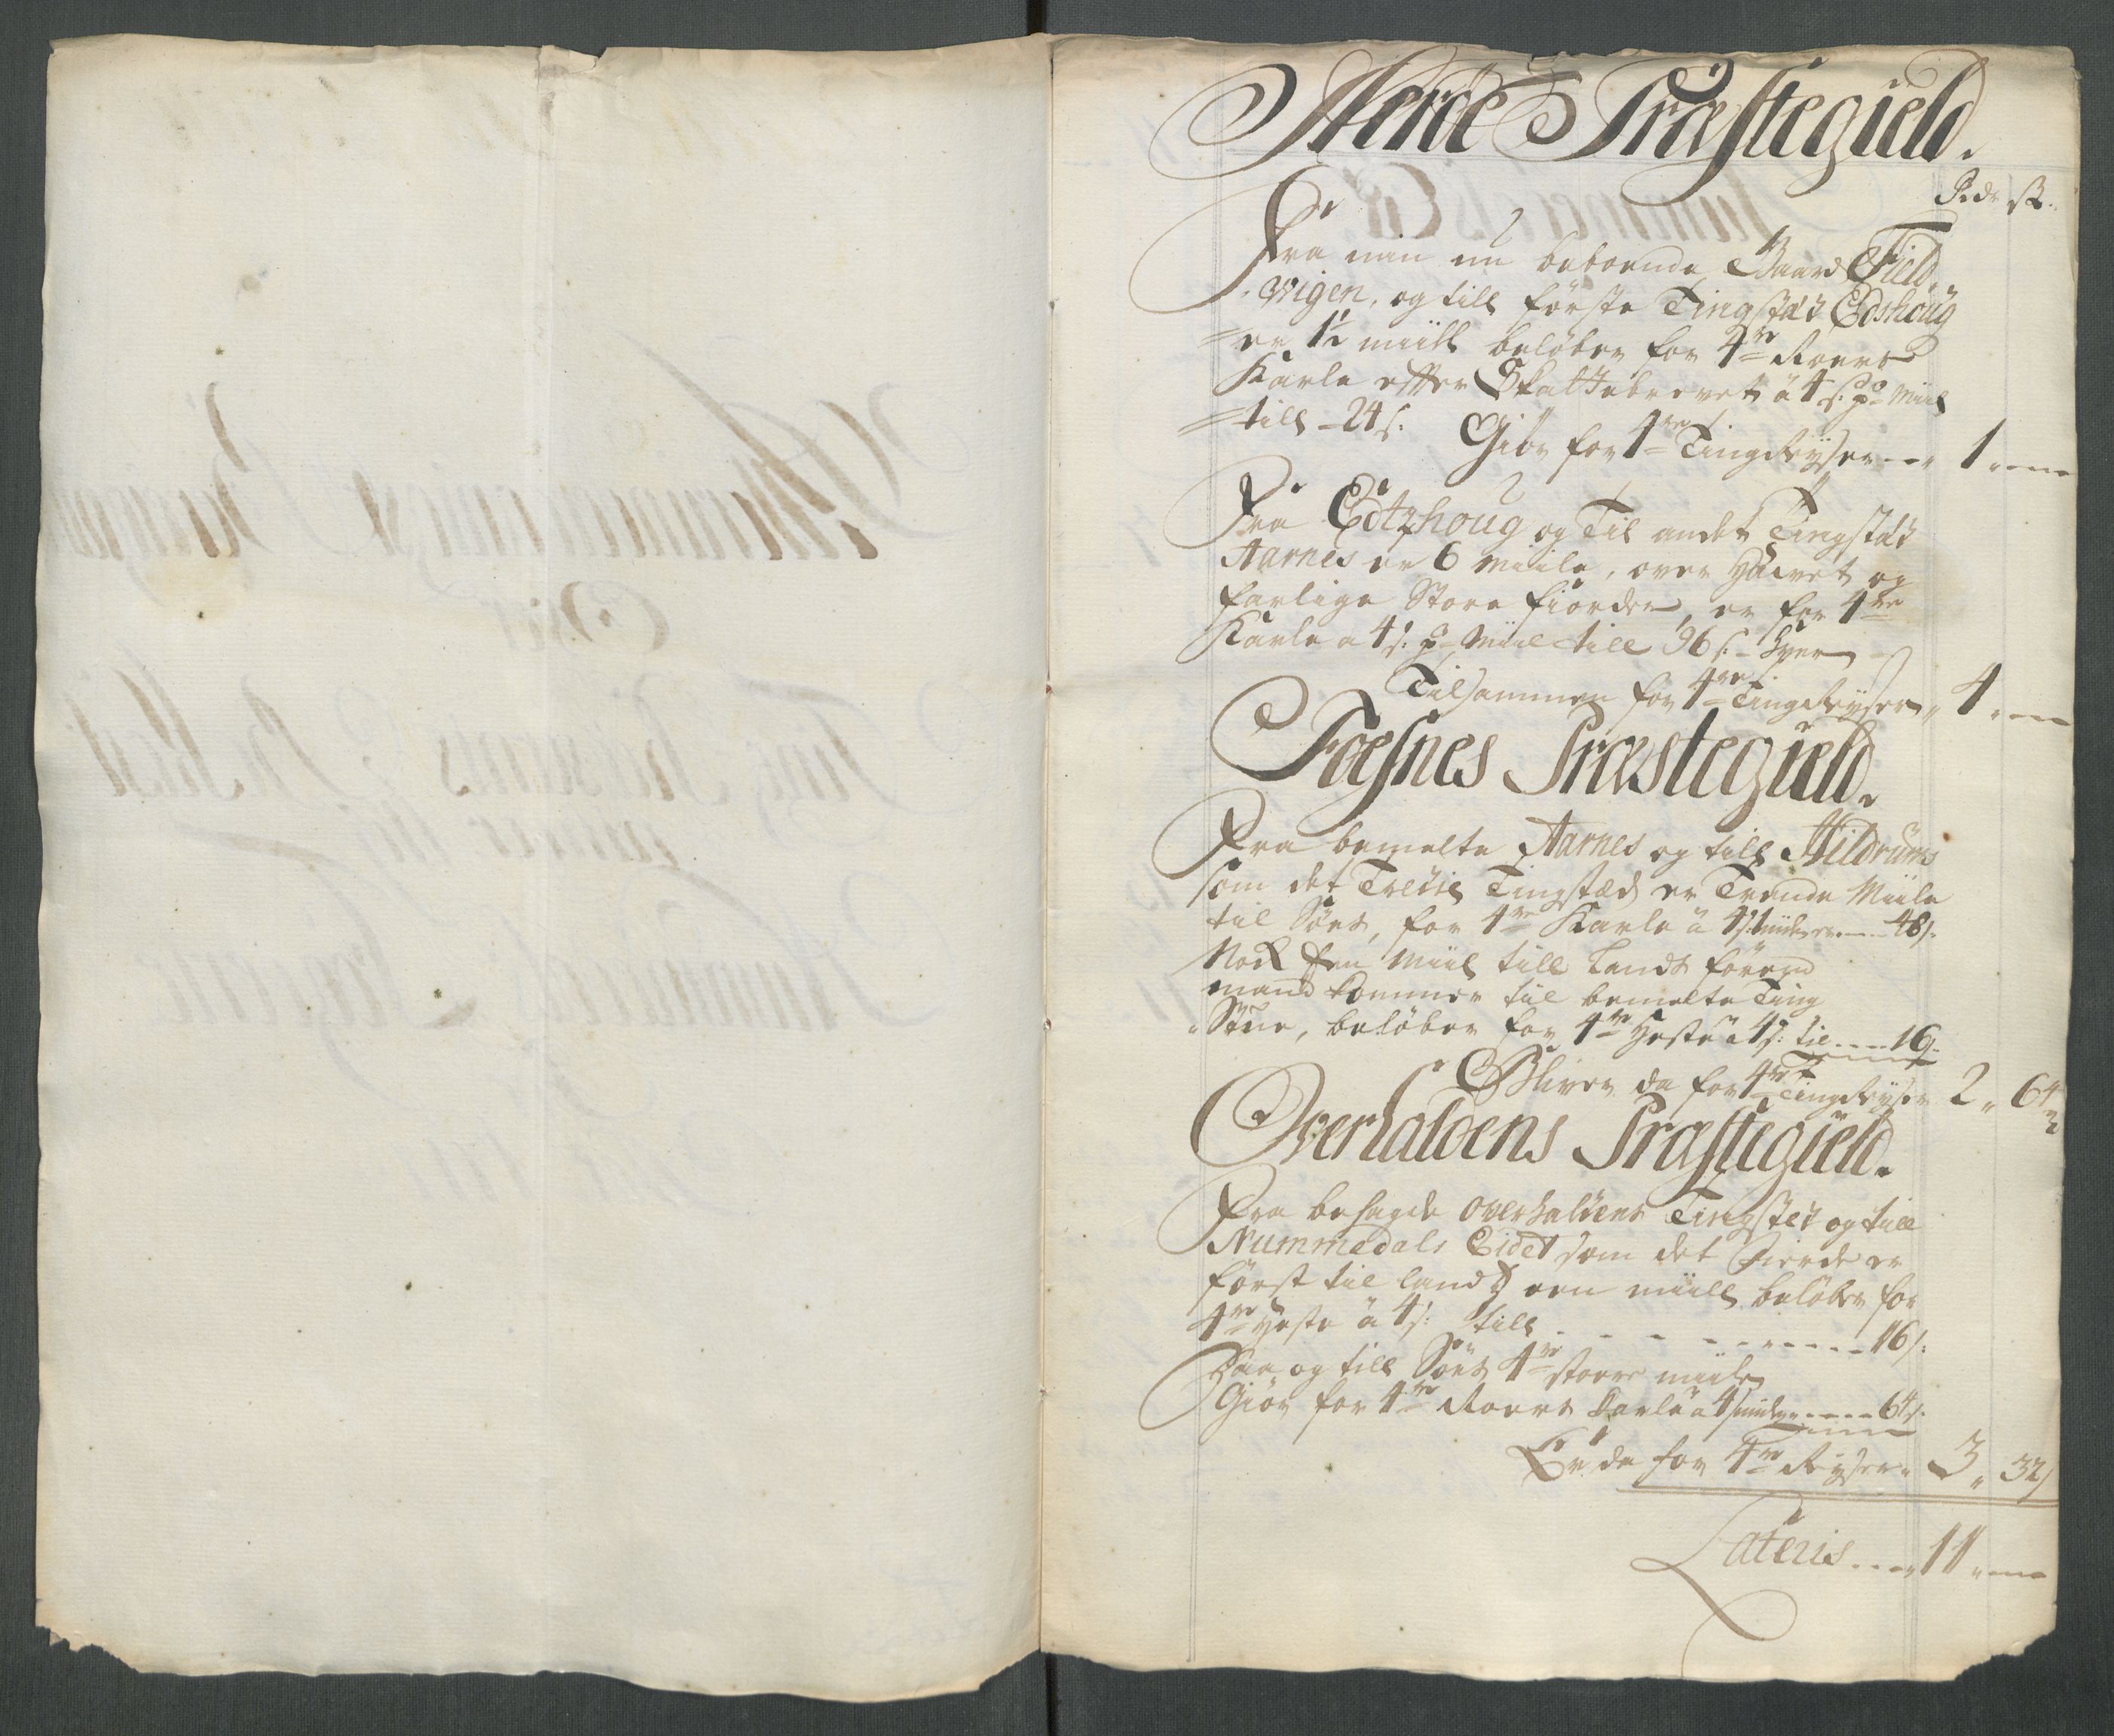 Nerøe Præstegield.
Rdr ß.
Fra min nu beboende Gaard Field„
wigen, og till første Tingstæd Edshoug
er 1½ miill beløber for 4re Roers
Karle effter Skattebrevet â 4 s: pr Miil
till _ 24 s: Giør for 4re Ting Reyser --- 1 „ ---
Fra Edtzhoug og Til andet Tingstæd
Aarnes er 6 Miile, over Havet og
farlige Store fiorder, er for 4re
Karle a 4 s: pr Miil till 96 s: hver
Tilsammen for 4re Ting Reyser „ 4 „ ---
Foesnes Præstegield.
Fra bemelte Aarnes og till Hildrums
som det Tredie Tingstæd er Trende Miile
til Søes, for 4re Karle â 4 s: Miilen er --- 48 s:
Nock Een Miil till Lands førend
mand kommer til bemelte Ting
Stue, beløber for 4re Heste â 4 s: til --- 16 s:
Bliver da for 4re Ting Reyser 2 „ 64
Overhaldens Præstegield.
Fra besagde Overhaldens Tingsted og till
Nummedals Eidet som det fierde er
først til lands een miill beløber for
4re Heste â 4 s: till - - - - - - - - 16 s:
Saa og till Søes 4re stoere miile
Giør for 4re Roers Karle â 4 s miilen ---- 64 s:
Er da for 4re Reyser „ 3 „ 32
Lateris --- 11 „ ---